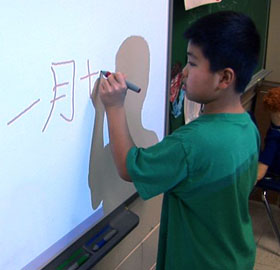 一月十